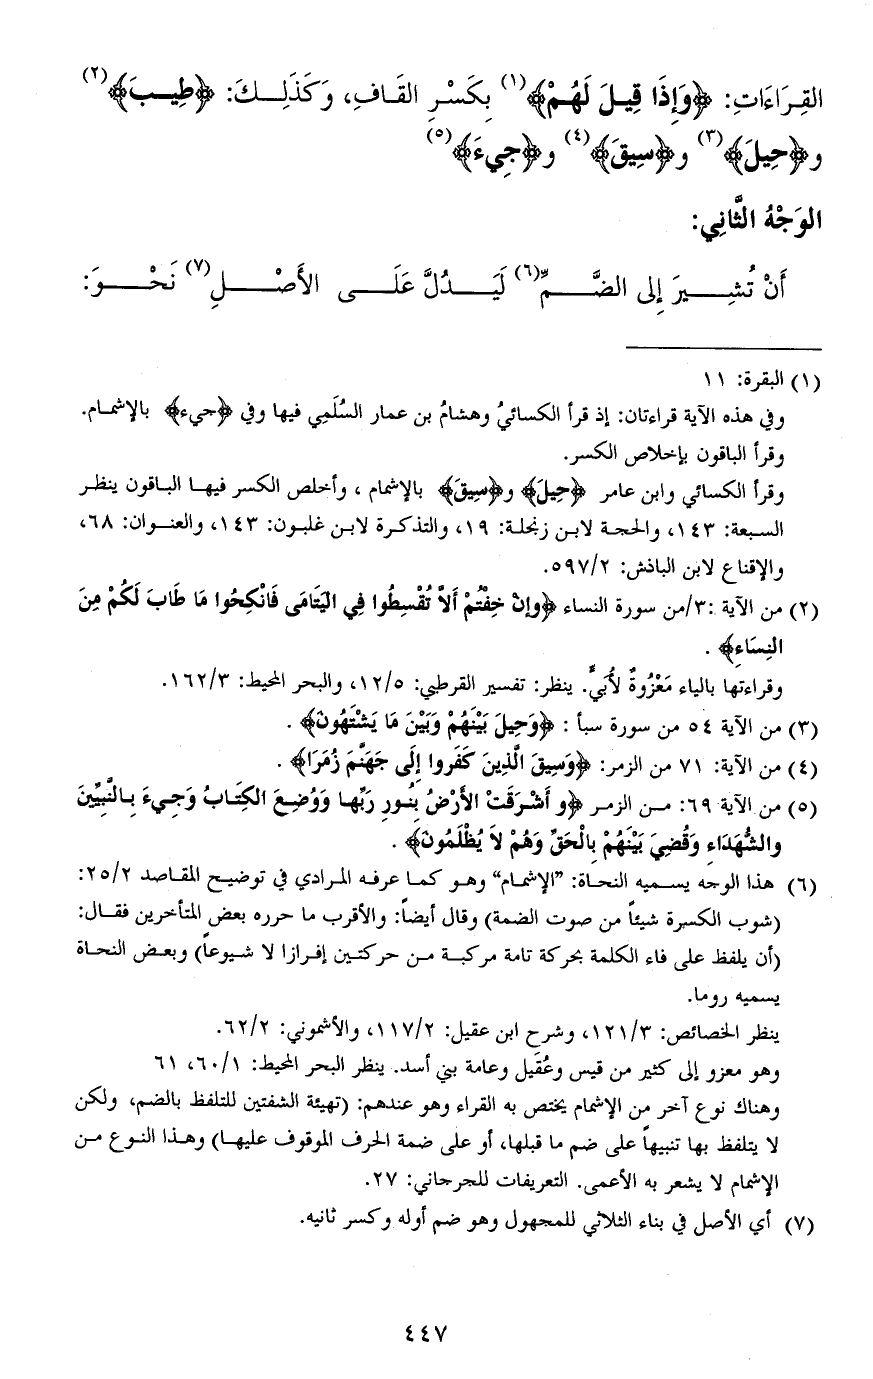 القِرَاءَاتِ: ﴿وَإِذَا قِيلَ لَهُمْ﴾(١) بِكَسْرِ القَافِ، وَكَذَلِكَ: ﴿طِيبَ﴾(٢)
و﴿حِيلَ﴾(٣) و﴿سِيقَ﴾(٤) و﴿جِيءَ﴾(٥)
الوَجْهُ الثَّانِي:
أَنْ تُشِيرَ إِلى الضَّمِّ(٦) لَيَدُلَّ عَلَى الأَصْلِ(٧) نَحْوَ:
(١) البقرة: ١١
وفي هذه الآية قراءتان: إذ قرأ الكسائيُ وهشامُ بن عمار السُلَمِي فيها وفي ﴿جيء﴾ بالإشمام.
وقرأ الباقون بإخلاص الكسر.
وقرأ الكسائي وابن عامر ﴿حِيلَ﴾ و﴿سِيقَ﴾ بالإشمام ، وأخلص الكسر فيها الباقون ينظر
السبعة: ١٤٣، والحجة لابن زنجلة: ١٩، والتذكرة لابن غلبون: ١٤٣، والعنوان: ٦٨،
والإقناع لابن الباذش: ٥٩٧/٢.
(٢) من الآية :٣/من سورة النساء ﴿وإِنْ خِفْتُمْ أَلاَّ تُقْسِطُوا فِي اليَتَامَى فَانْكِحُوا مَا طَابَ لَكُمْ مِنَ
النِسَاءِ﴾ .
وقراءتها بالياء مَعْزُوةٌ لأُبَيٍّ. ينظر: تفسير القرطبي: ١٢/٥، والبحر المحيط: ١٦٢/٣.
(٣) من الآية ٥٤ من سورة سبأ : ﴿وَحِيلَ بَيْنَهُمْ وَبَيْنَ مَا يَشْتَهُونَ﴾ .
(٤) من الآية: ٧١ من الزمر: ﴿وَسِيقَ الَّذِينَ كَفَروا إِلَى جَهَنَّمَ زُمَرَا﴾ .
(٥) من الآية ٦٩: من الزمر ﴿و أَشْرَقَتْ الأَرْضُ بِنُورِ رَبِّها وَوُضِعَ الكِتَابُ وَجِيءَ بِالنَّبِيِّينَ
والشُّهَدَاءِ وَقُضِيَ بَيْنَهُمْ بِالْحَقِّ وَهُمْ لاَ يُظْلَمُونَ﴾ .
(٦) هذا الوجه يسميه النحاة: ”الإشمام“ وهو كما عرفه المرادي في توضيح المقاصد ٢٥/٢:
(شوب الكسرة شيئاً من صوت الضمة) وقال أيضاً: والأقرب ما حرره بعض المتأخرين فقال:
(أن يلفظ على فاء الكلمة بحركة تامة مركبة من حركتين إفرازا لا شيوعاً) وبعض النحاة
يسميه روما.
ينظر الخصائص: ١٢١/٣، وشرح ابن عقيل: ١١٧/٢، والأشموني: ٦٢/٢.
وهو معزو إلى كثير من قيس وعُقَيل وعامة بني أسد. ينظر البحر المحيط: ٦٠/١، ٦١
وهناك نوع آخر من الإشمام يختص به القراء وهو عندهم: (تهيئة الشفتين للتلفظ بالضم، ولكن
لا يتلفظ بها تنبيهاً على ضم ما قبلها، أو على ضمة الحرف الموقوف عليها) وهذا النوع من
الإشمام لا يشعر به الأعمى. التعريفات للجرجاني: ٢٧.
(٧) أي الأصل في بناء الثلاثي للمجهول وهو ضم أوله وكسر ثانيه.
٤٤٧